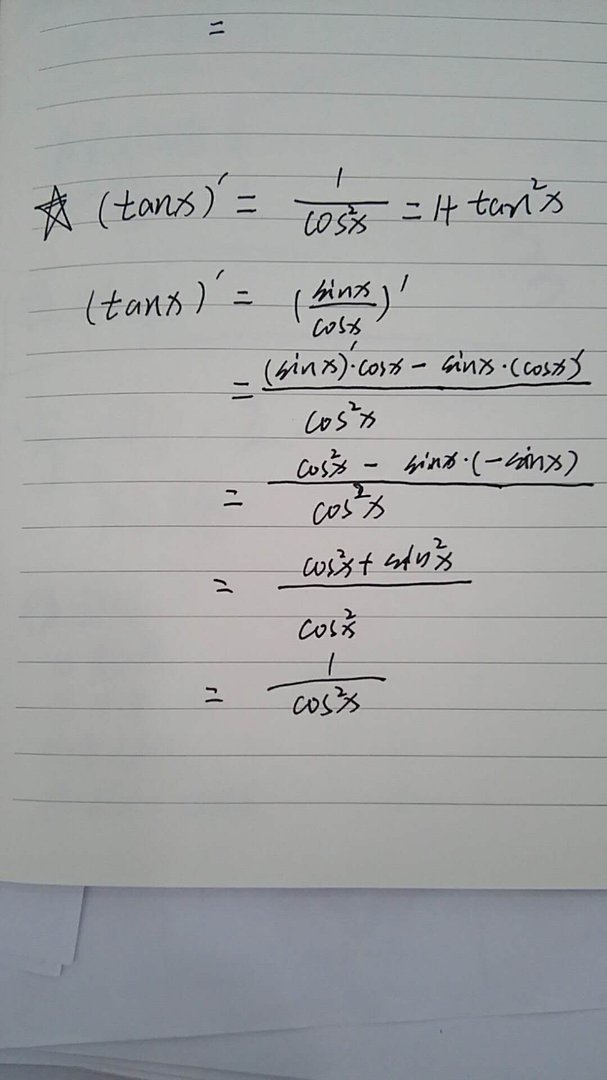 =
☆ (tanx)' = 1/cos²x = 1+ tan²x
(tanx)' = (sinx/cosx)'
= ((sinx)'·cosx - sinx·(cosx)')/cos²x
= (cos²x - sinx·(-sinx))/cos²x
= (cos²x + sin²x)/cos²x
= 1/cos²x